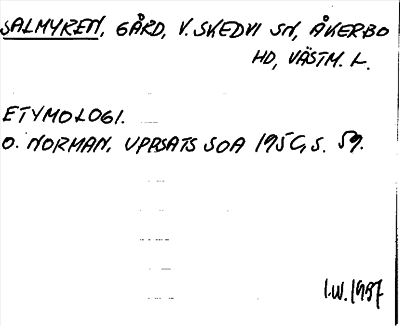 SALMYREN, GÅRD, V. SKEDVI SN, ÅKERBO
HD, VÄSTM. L.
ETYMOLOGI.
O. NORMAN, UPPSATS SOA 195 S. 59.
I.W. 1987